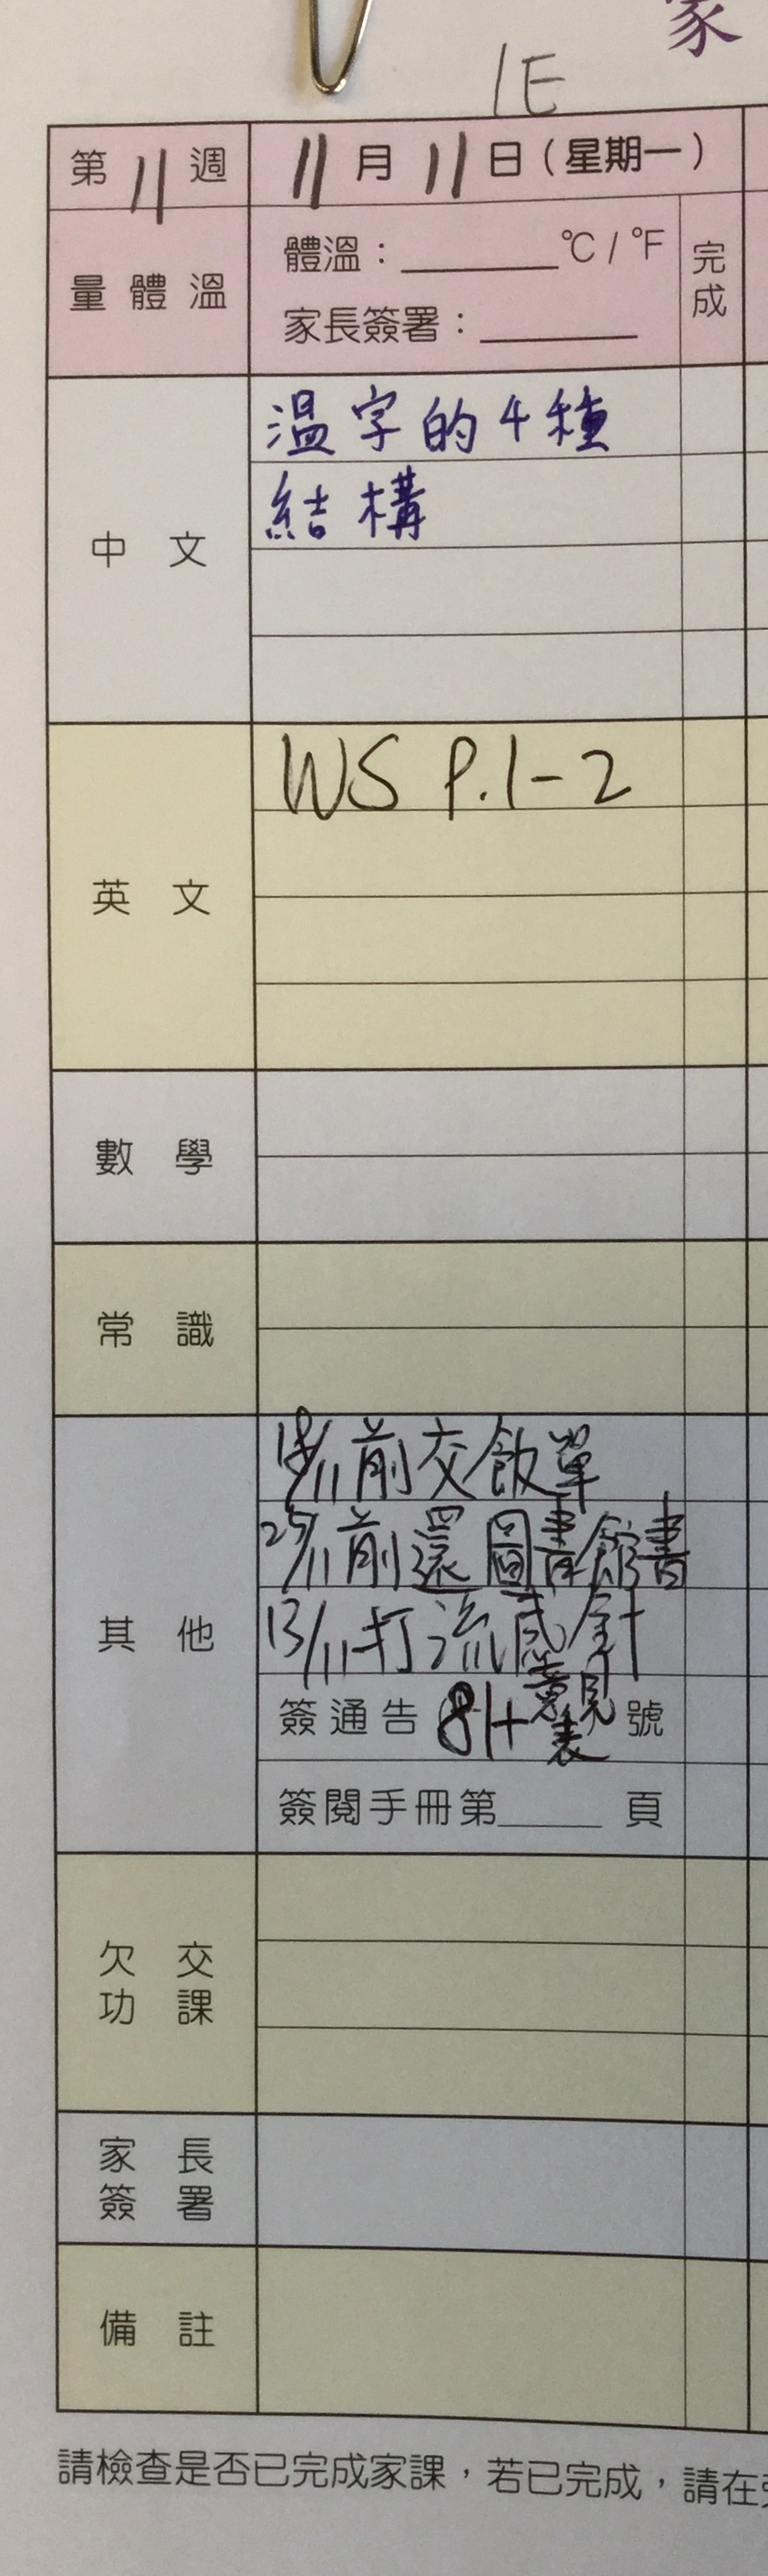 家
1E
第11週
11月11日(星期一)
量體溫
體溫：______°C / °F
家長簽署：______
完成
中文
溫字的4種
結構
英文
WS P.1-2
數學
常識
其他
/11前交飯單
25/11前還圖書館書
13/11打流感針
簽通告81+意見表號
簽閱手冊第______頁
欠交功課
家長簽署
備註
請檢查是否已完成家課，若已完成，請在